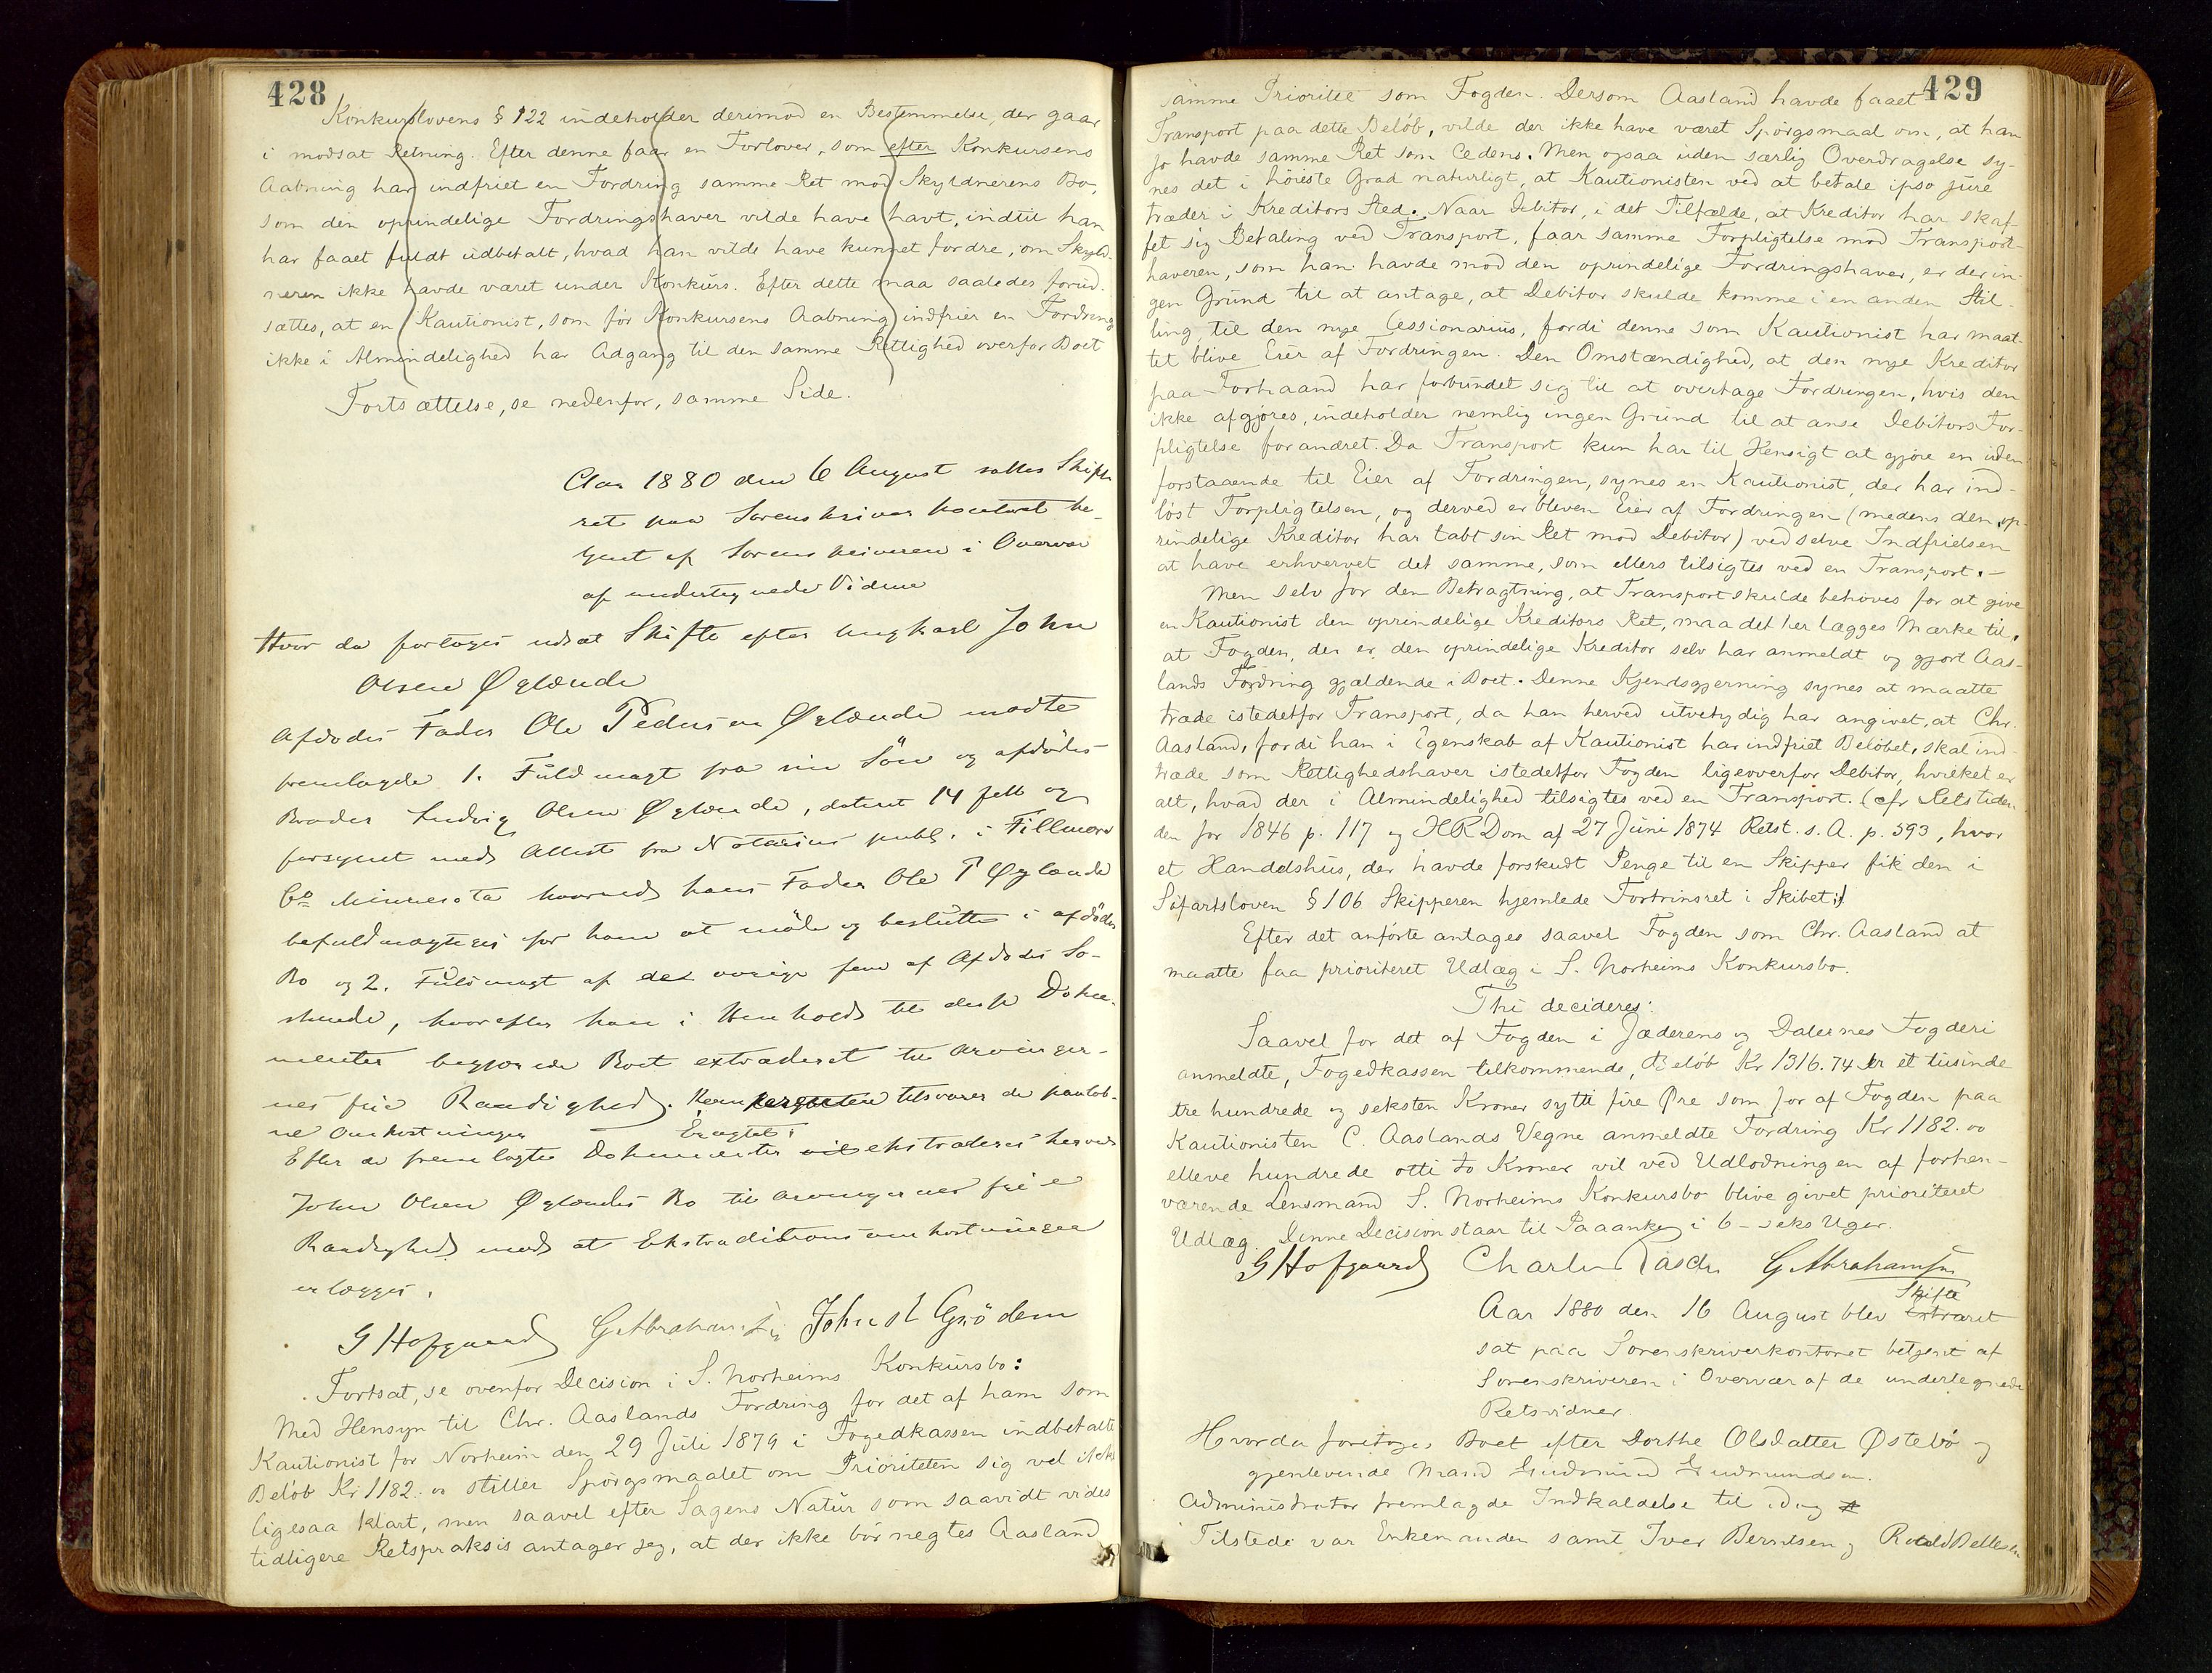 428
Konkurslovens § 122 indeholder derimod en Bestemmelse, der gaar
i modsat Retning. Efter denne faar en Forlover, som efter Konkursens
Aabning har indfriet en Fordring samme Ret mod Skyldnerens Bo,
som den oprindelige Fordringshaver vilde have havt, indtil han
har faaet fuldt udbetalt, hvad han vilde have kunnet fordre, om Skyld-
neren ikke havde været under Konkurs. Efter dette maa saaledes forud-
sættes, at en Kautionist, som før Konkursens Aabning indfrier en Fordring
ikke i Almindelighed har Adgang til den samme Rettighed overfor Boet
Fortsættelse, se nedenfor, samme Side.
Aar 1880 den 6 August sattes Skifte
ret paa Sorenskriver kontoret be-
tjent af Sorenskriveren i Overvær
af undertegnede Vidner
Hvor da foretoges udsat Skifte efter Ungkarl John
Olsen Øglænde
Afdødes Fader Ole Pedersen Øglænde mødte
fremlagde 1. Fuldmagt fra sin Søn og afdødes
Broder Ludvig Olsen Øglænde, dateret 14 feb og
forsynet med Attest fra Notarius publ. i Fillmore
Co Minnesota hvorved hans Fader Ole P Øglænde
befuldmægtiges for ham at møde og beslutte i afdødes
Bo og 2. Fuldmagt af det øvrige fem af Afdødes Sø-
skende, hvorefter han i Henhold til disse Doku-
menter begjærede Boet extraderet til Arvinger-
nes frie Raadighed. tilsvarer de paaløb-
ne Omkostninger
Eragtet:
Efter de fremlagte Dokumenter ekstraderes herved
John Olsen Øglændes Bo til Arvingernes frie
Raadighed mod at Ekstraditionsomkostningerne
erlægges.
G Hofgaard G Abrahamsen John L Grödem
Fortsat, se ovenfor Decision i S. Norheims Konkursbo:
Med Hensyn til Chr. Aaslands Fordring for det af ham som
Kautionist for Norheim den 29 Juli 1879 i Fogedkassen indbetalte
Beløb Kr 1182. 00 stiller Spørgsmaalet om Prioriteten sig vel ikke
ligesaa klart, men saavel efter Sagens Natur som saavidt vides
tidligere Retspraksis antager jeg, at der ikke bør negtes Aasland
429
samme Prioritet som Fogden. Dersom Aasland havde faaet
Transport paa dette Beløb, vilde der ikke have været Spørgsmaal om, at han
jo havde samme Ret som Cedens. Men ogsaa uden særlig Overdragelse sy-
nes det i høieste Grad naturligt, at Kautionisten ved at betale ipso jure
træder i Kreditors Sted. Naar Debitor, i det Tilfælde, at Kreditor har skaf-
fet sig Betaling ved Transport, faar samme Forpligtelse mod Transport-
haveren, som han havde mod den oprindelige Fordringshaver, er der in-
gen Grund til at antage, at Debitor skulde komme i en anden Stil-
ling til den nye Cessionarius, fordi denne som Kautionist har maat-
tet blive Eier af Fordringen. Den Omstændighed, at den nye Kreditor
paa Forhaand har forbundet sig til at overtage Fordringen, hvis den
ikke afgjøres, indeholder nemlig ingen Grund til at anse Debitors For-
pligtelse forandret. Da Transport kun har til Hensigt at gjøre en uden-
forstaaende til Eier af Fordringen, synes en Kautionist, der har ind-
løst Forpligtelsen, og derved er bleven Eier af Fordringen (medens den op-
rindelige Kreditor har tabt sin Ret mod Debitor) ved selve Indfrielsen
at have erhvervet det samme, som ellers tilsigtes ved en Transport. –
Men selv for den Betragtning, at Transport skulde behøves for at give
en Kautionist den oprindelige Kreditors Ret, maa det her lægges Mærke til,
at Fogden, der er den oprindelige Kreditor selv har anmeldt og gjort Aas-
lands Fordring gjældende i Boet. Denne Kjendsgjerning synes at maatte
træde istedetfor Transport, da han herved utvetydig har angivet, at Chr.
Aasland, fordi han i Egenskab af Kautionist har indfriet Beløbet, skal ind-
træde som Rettighedshaver istedetfor Fogden ligeoverfor Debitor, hvilket er
alt, hvad der i Almindelighed tilsigtes ved en Transport. (cfr Retstiden
den for 1846 p. 117 og HRDom af 27 Juni 1874 Retst. s. A. p. 593, hvor
et Handelshus, der havde forskudt Penge til en Skipper fik den i
Søfartsloven § 106 Skipperen hjemlede Fortrinsret i Skibet.)
Efter det anførte antages saavel Fogden som Chr. Aasland at
maatte faa prioriteret Udlæg i S. Norheims Konkursbo.
Thi decideres:
Saavel for det af Fogden i Jæderens og Dalernes Fogderi
anmeldte, Fogedkassen tilkommende, Beløb Kr 1316. 74 er et tusinde
tre hundrede og seksten Kroner sytti fire Øre som for af Fogden paa
Kautionisten C. Aaslands Vegne anmeldte Fordring Kr 1182. 00
elleve hundrede otti to Kroner vil ved Udlodningen af forhen-
værende Lensmand S. Norheims Konkursbo blive givet prioriteret
Udlæg. Denne Decision staar til Paaanke i 6 – seks Uger.
G Hofgaard G. Abrahamsen
Skifte
Aar 1880 den 16 August blev Extraret
sat paa Sorenskriverkontoret betjent af
Sorenskriveren i Overvær af de undertegnede
Retsvidner.
Hvorda foretoges Boet efter Dorthe Olsdatter Østebø og
gjenlevende Mand Gudmund Gudmundsen.
Administrator fremlagde Indkaldelse til idag
Tilstede var Enkemanden samt Iver Berntsen og